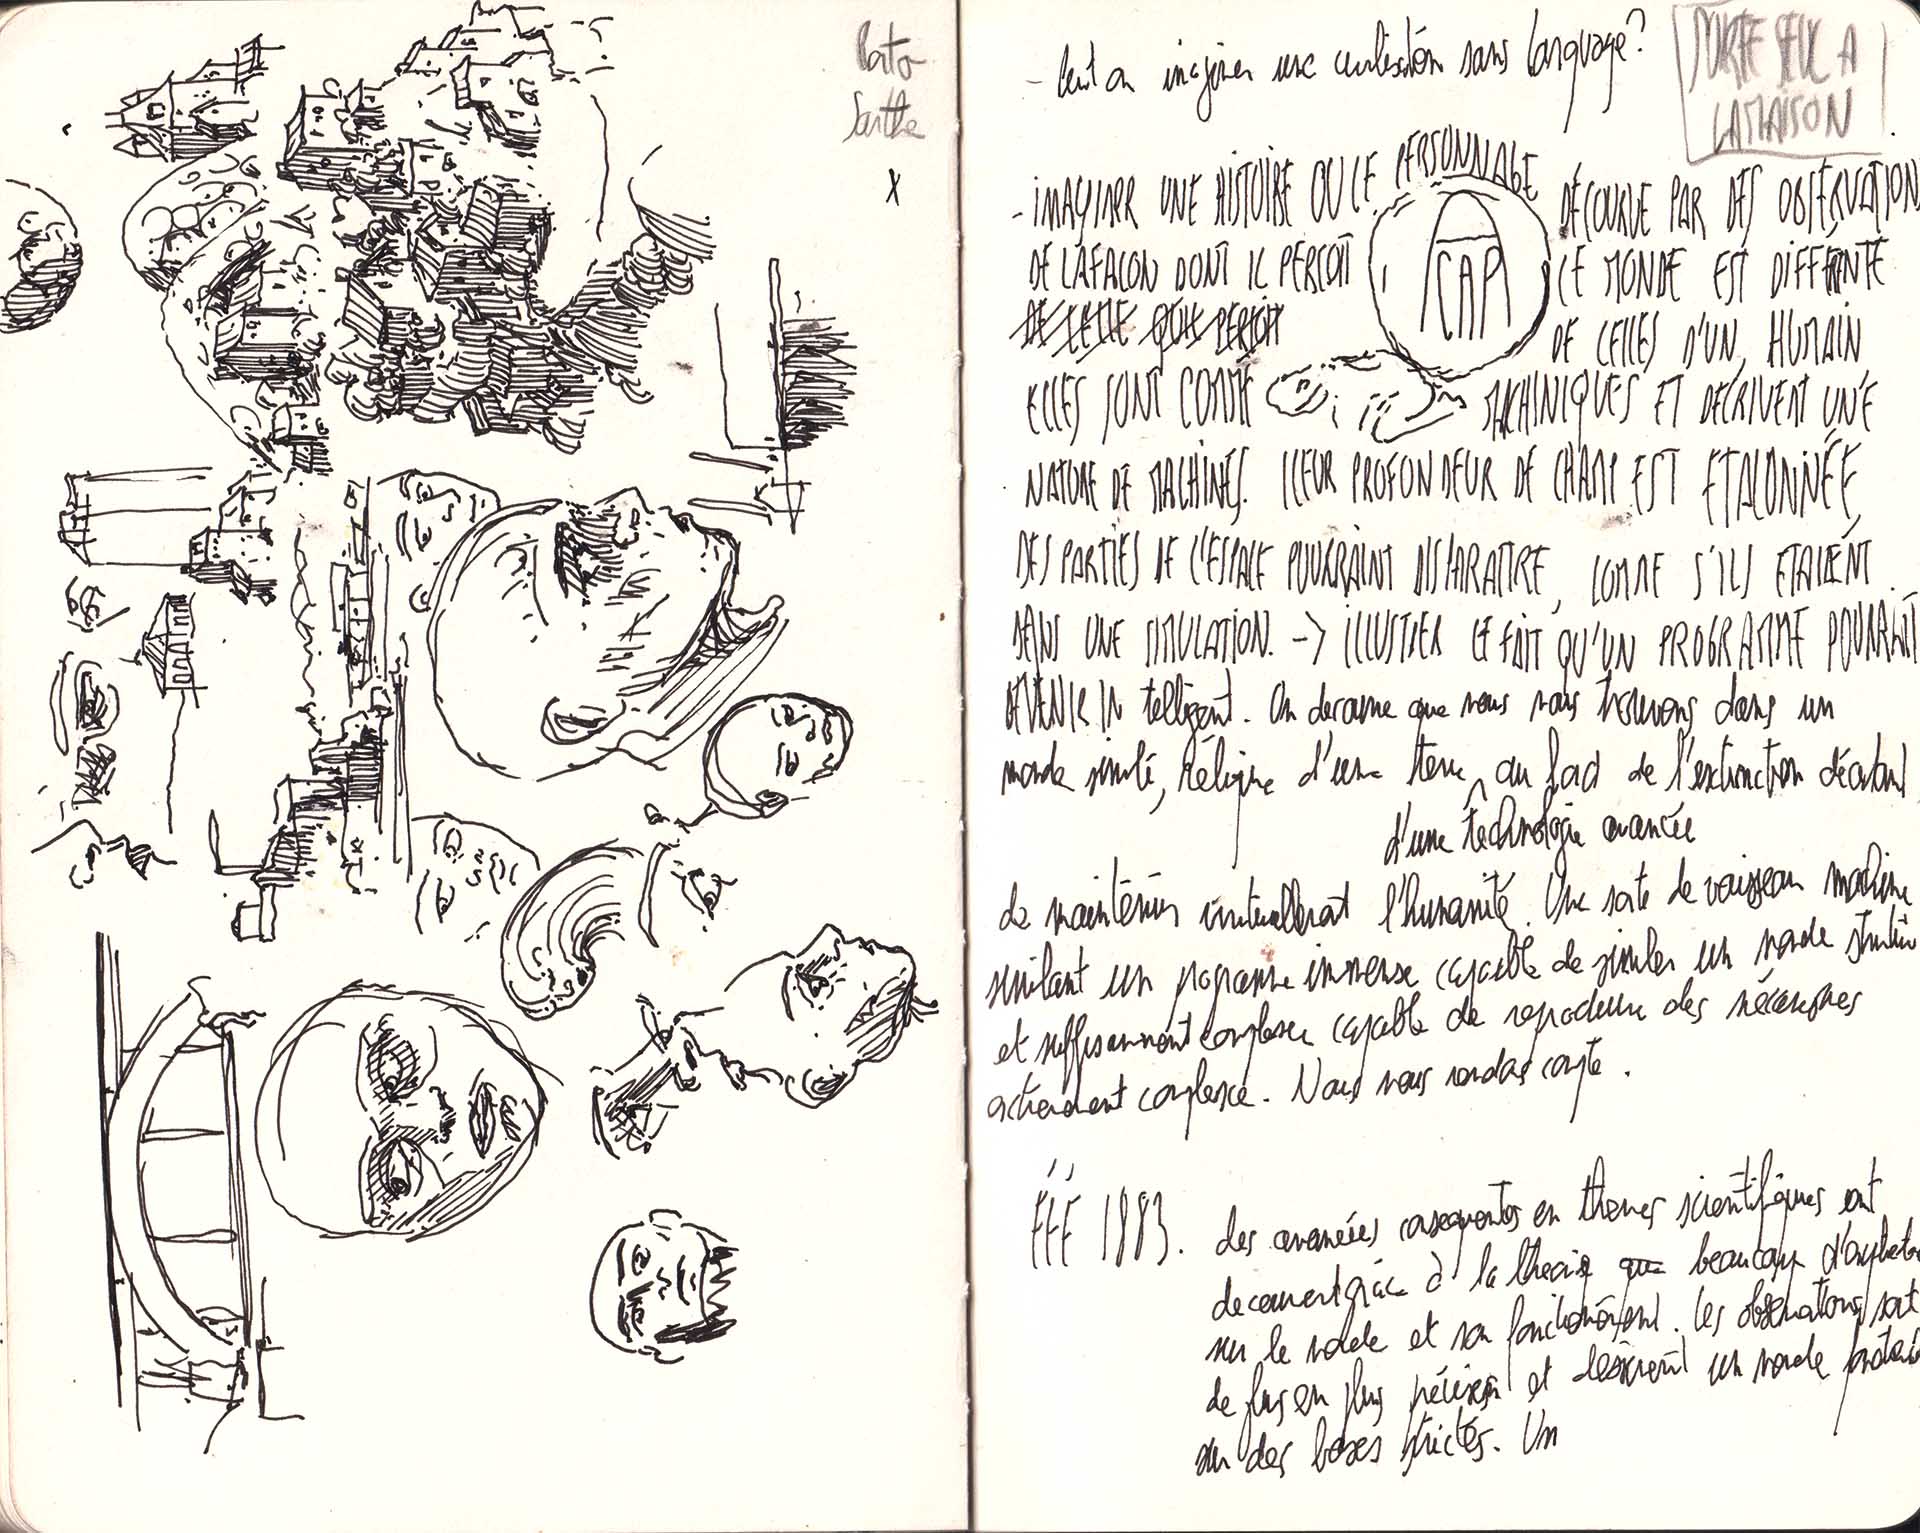 Porto
Sarthe
x
- Peut on imaginer une civilisation sans language?
SOIRÉE SEUL A
LA MAISON
- IMAGINER UNE HISTOIRE OU LE PERSONNAGE DÉCOUVRE PAR DES OBSERVATIONS
DE LA FACON DONT IL PERCOIT LE MONDE EST DIFFÉRENTE
DE CELLE QU'IL PERCOIT DE CELLES D'UN HUMAIN,
ACAP
ELLES SONT COMME MACHINIQUES ET DECRIVENT UNE
NATURE DE MACHINES. LEUR PROFONDEUR DE CHAMP EST ETALONNÉE,
DES PARTIES DE L'ESPACE POURRAINT DISPARAITRE, COMME S'ILS ETAIENT
DANS UNE SIMULATION. -> ILLUSTRER LE FAIT QU'UN PROGRAMME POURRAIT
DEVENIR INtelligent. On découvre que nous nous trouvons dans un
monde simulé, rélique d'une terre, au bord de l'extinction décidant
d'une technologie avancée
de maintenir virtuellement l'humanité. Une sorte de vaisseau machine
simulant un programme immense capable de simuler un monde
et suffisamment complexe capable de reproduire des mécanismes
extremement complexe. Nous nous rendons compte.
ÉTÉ 1883. des avancées conséquentes en themes scientifiques ont
decouvert grâce à la que beaucoup
sur le monde et son fonctionnement. Les observations sont
de plus en plus précises et décrivent un monde
sur des bases strictes. Un